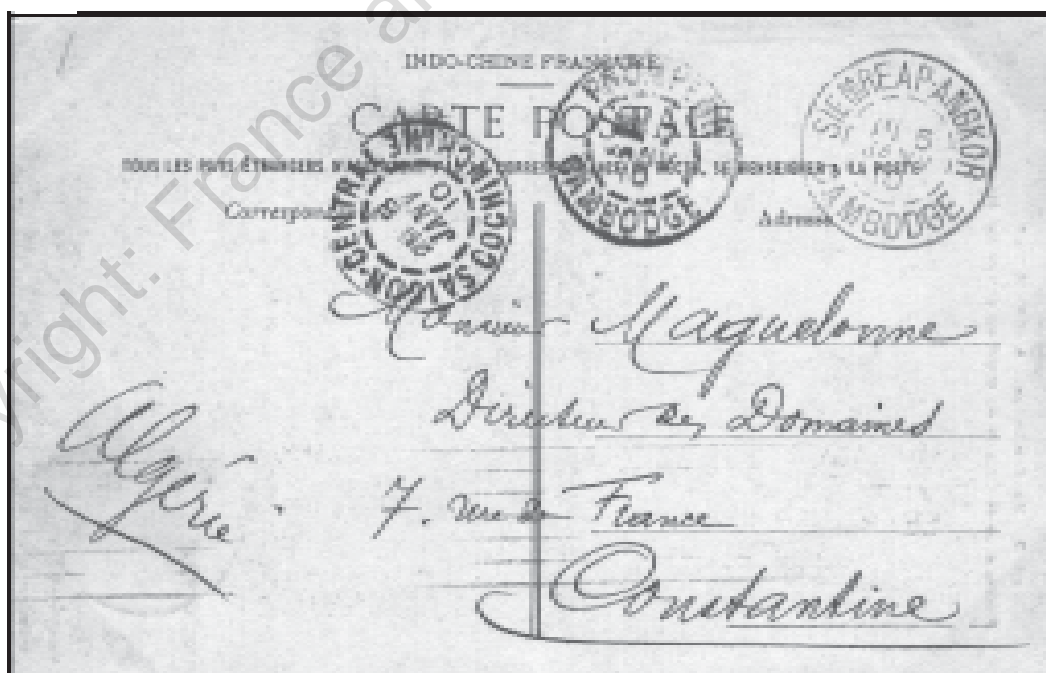 Copyright: France
INDO-CHINE FRANÇAISE
CARTE POSTALE
TOUS LES PAYS ÉTRANGERS SE RENSEIGNER à LA POSTE
Correspondance
Adresse
SAIGON-CENTRAL COCHINCHINE
26 JANV 10
PNOM-PENH
CAMBODGE
SIEMREAP-ANGKOR
CAMBODGE
Monsieur Maguelonne
Directeur des Domaines
7. rue de France
Constantine
Algérie